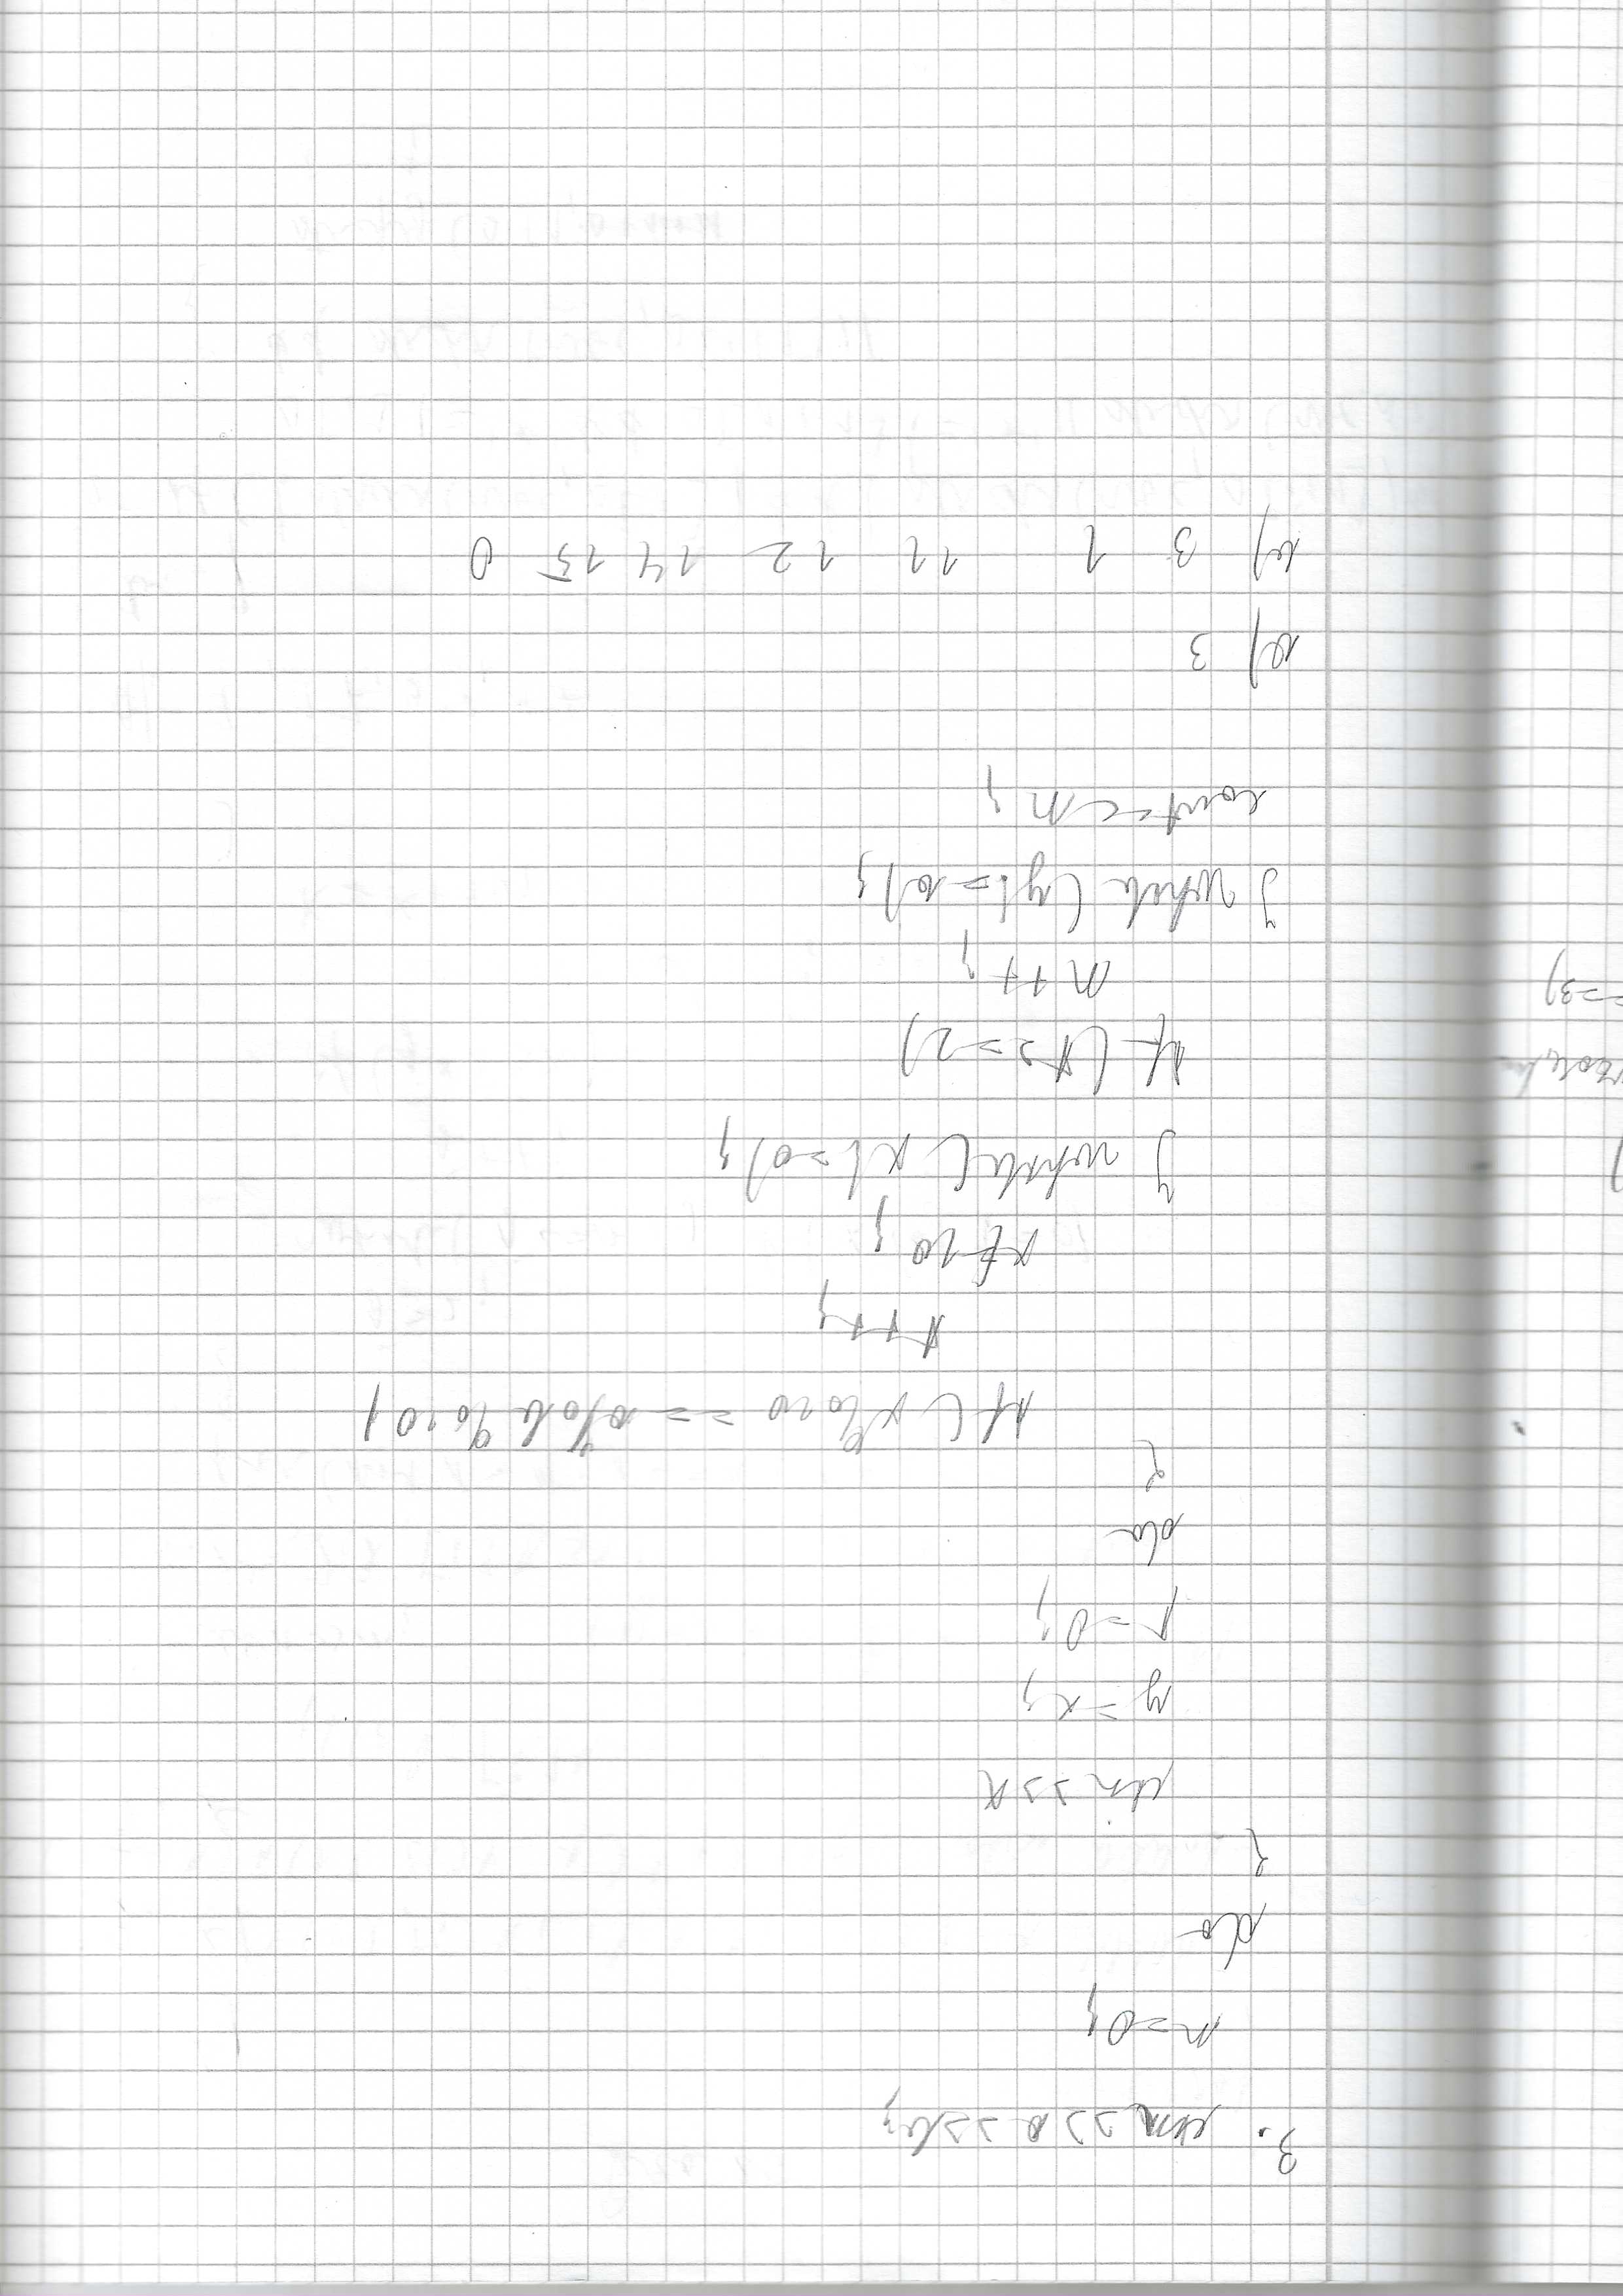 3. cin>>a>>b;
n=0;
do
{
cin>>x
y=x;
r=0;
do
{
if(x%10==a%b%10)
r++;
x/=10;
} while(x!=0);
if(r>=2)
n++;
} while(y!=0);
cout<<n;
a) 3
b) 3 1 11 12 14 15 0
==3)